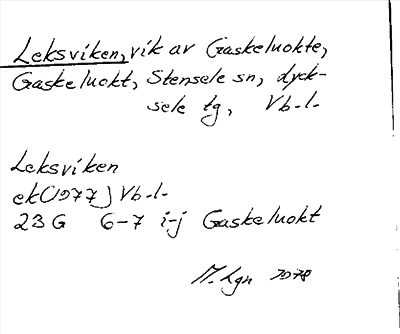 Leksviken, vik av Gaskeluokte,
Gaskeluokt, Stensele sn, Lyck-
sele tg, Vb.l.
Leksviken
ek (1977) Vb.l.
23 G 6-7 i-j Gaskeluokt
1978